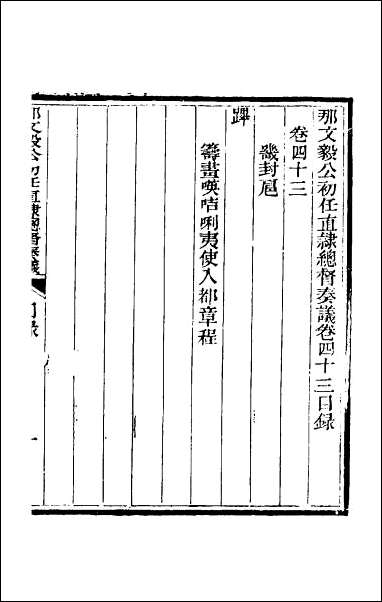 那文毅公初任直隸總督奏議卷四十三目録
卷四十三
畿封扈
蹕
籌畫𠸄咭唎夷使入都章程
那文毅公初任直隸總督奏議
目録
一